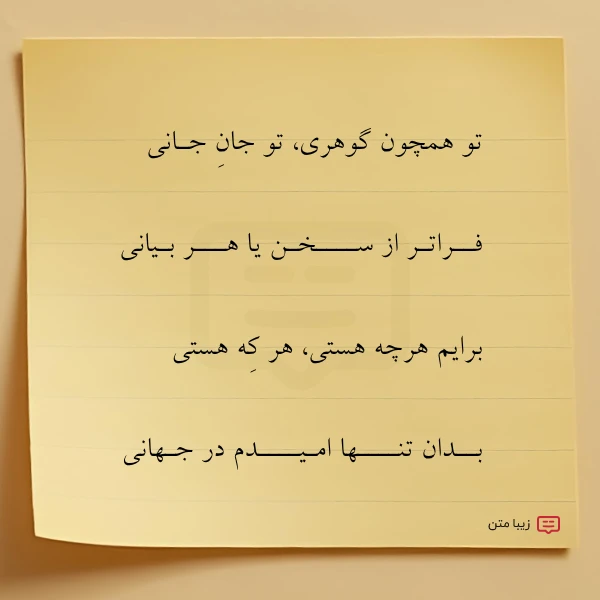 تو همچون گوهری، تو جانِ جـانی
فـــراتــر از ســـــخــن یا هــــر بـیانی
برایم هرچه هستی، هر کِه هستی
بــــدان تنـــــها امـیـــــدم در جـهانی
زیبا متن